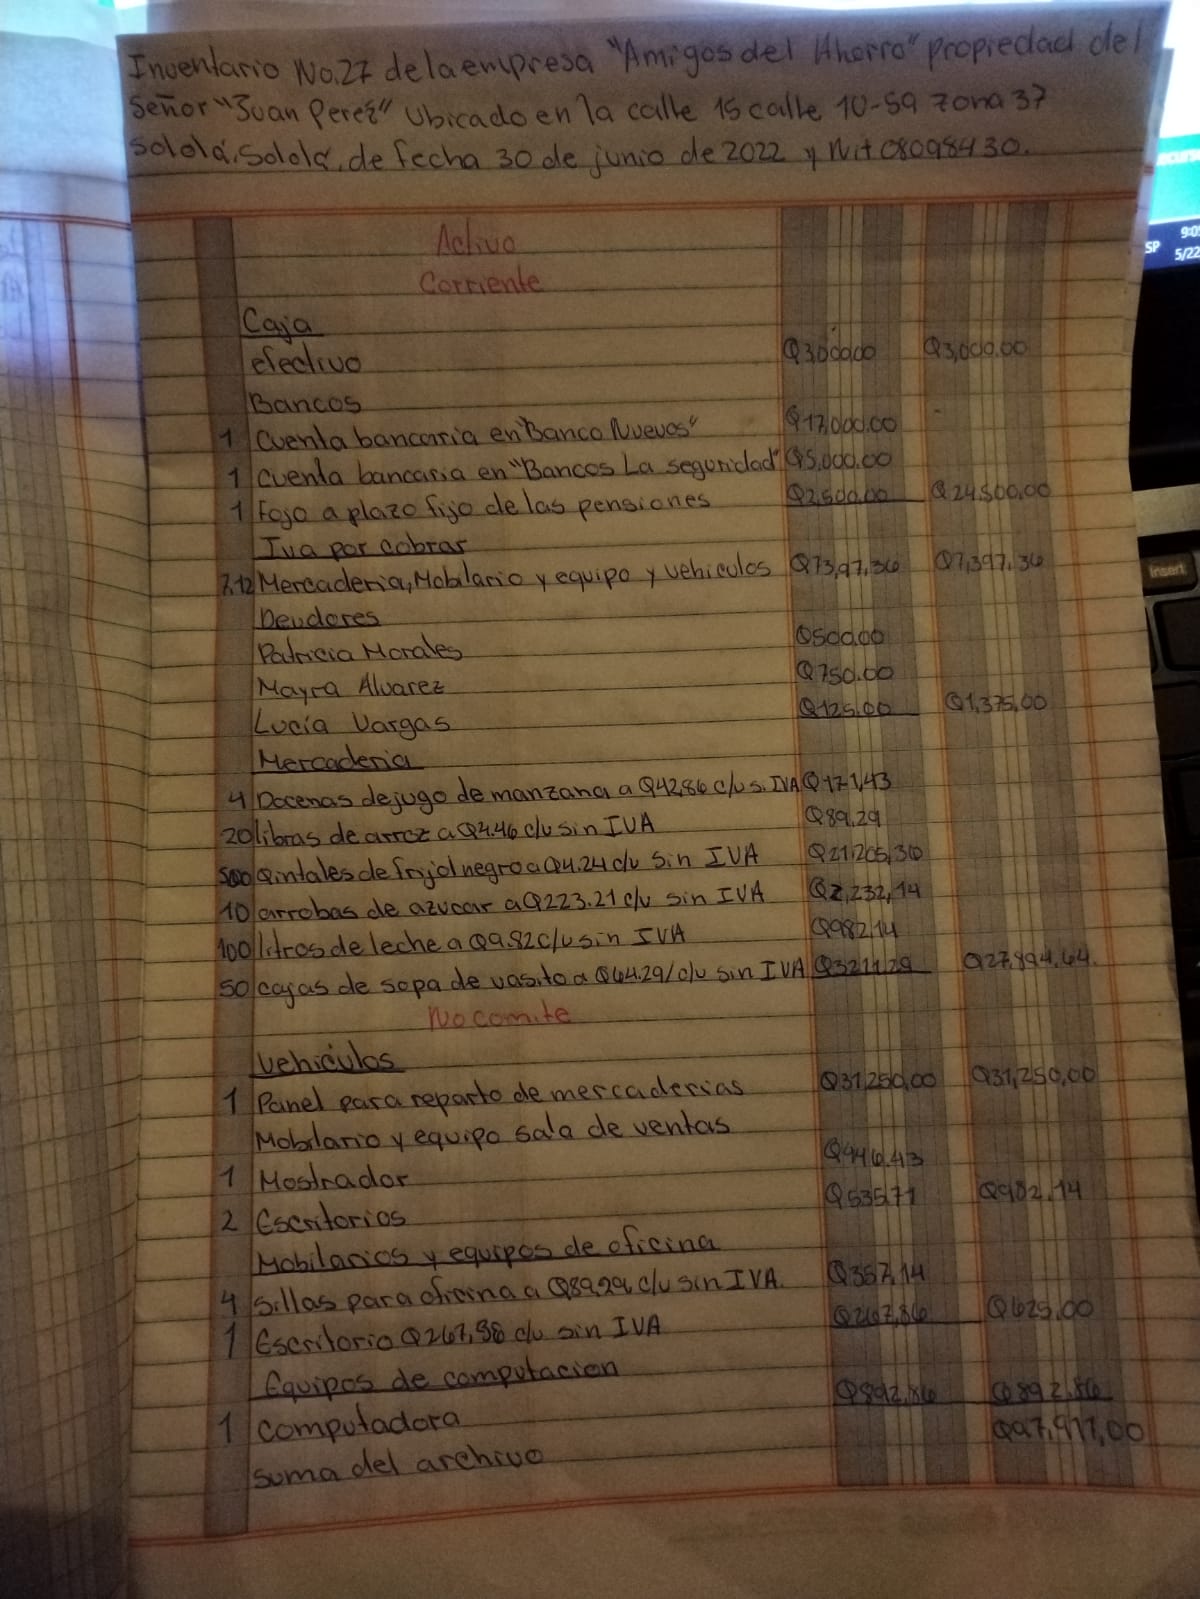 Inventario No.27 de la empresa "Amigos del Ahorro" propiedad del
Señor "Juan Perez" Ubicado en la calle 15 calle 10-59 zona 37
Sololá, Sololá, de fecha 30 de junio de 2022 y Nit 08098430.
Activo
Corriente
Caja
efectivo Q3,000.00 Q3,000.00
Bancos
1 Cuenta bancaria en "Banco Nuevos" Q17,000.00
1 Cuenta bancaria en "Bancos La seguridad" Q5,000.00
1 Fojo a plazo fijo de las pensiones Q2,500.00 Q24,500.00
Iva por cobrar
7,12 Mercaderia, Mobilario y equipo y vehiculos Q73,97,36 Q7,397.36
Deudores
Patricia Morales Q500.00
Mayra Alvarez Q750.00
Lucía Vargas Q125.00 Q1,375,00
Mercaderia
4 Docenas de jugo de manzana a Q42,86 c/u s. IVA Q171,43
20 libras de arroz a Q4.46 c/u sin IVA Q89.29
500 Qintales de frijol negro a Q4.24 c/u sin IVA Q21,205,36
10 arrobas de azucar a Q223.21 c/u sin IVA Q2,232,14
100 litros de leche a Q9.82 c/u sin IVA Q982,14
50 cajas de sopa de vasito a Q64.29/c/u sin IVA Q3214,29 Q27,894.64.
No corriente
Vehículos
1 Panel para reparto de mercaderias Q31,250,00 Q31,250,00
Mobilario y equipo sala de ventas
1 Mostrador Q446.43
2 Escritorios Q535,71 Q982,14
Mobilarios y equipos de oficina
4 Sillas para oficina a Q89,29 c/u sin IVA. Q357,14
1 Escritorio Q267,98 c/u sin IVA Q267,86 Q625,00
Equipos de computacion
1 Computadora Q892,86 Q892,86
suma del archivo Q97,917,00
SP
9:05
5/22
Insert